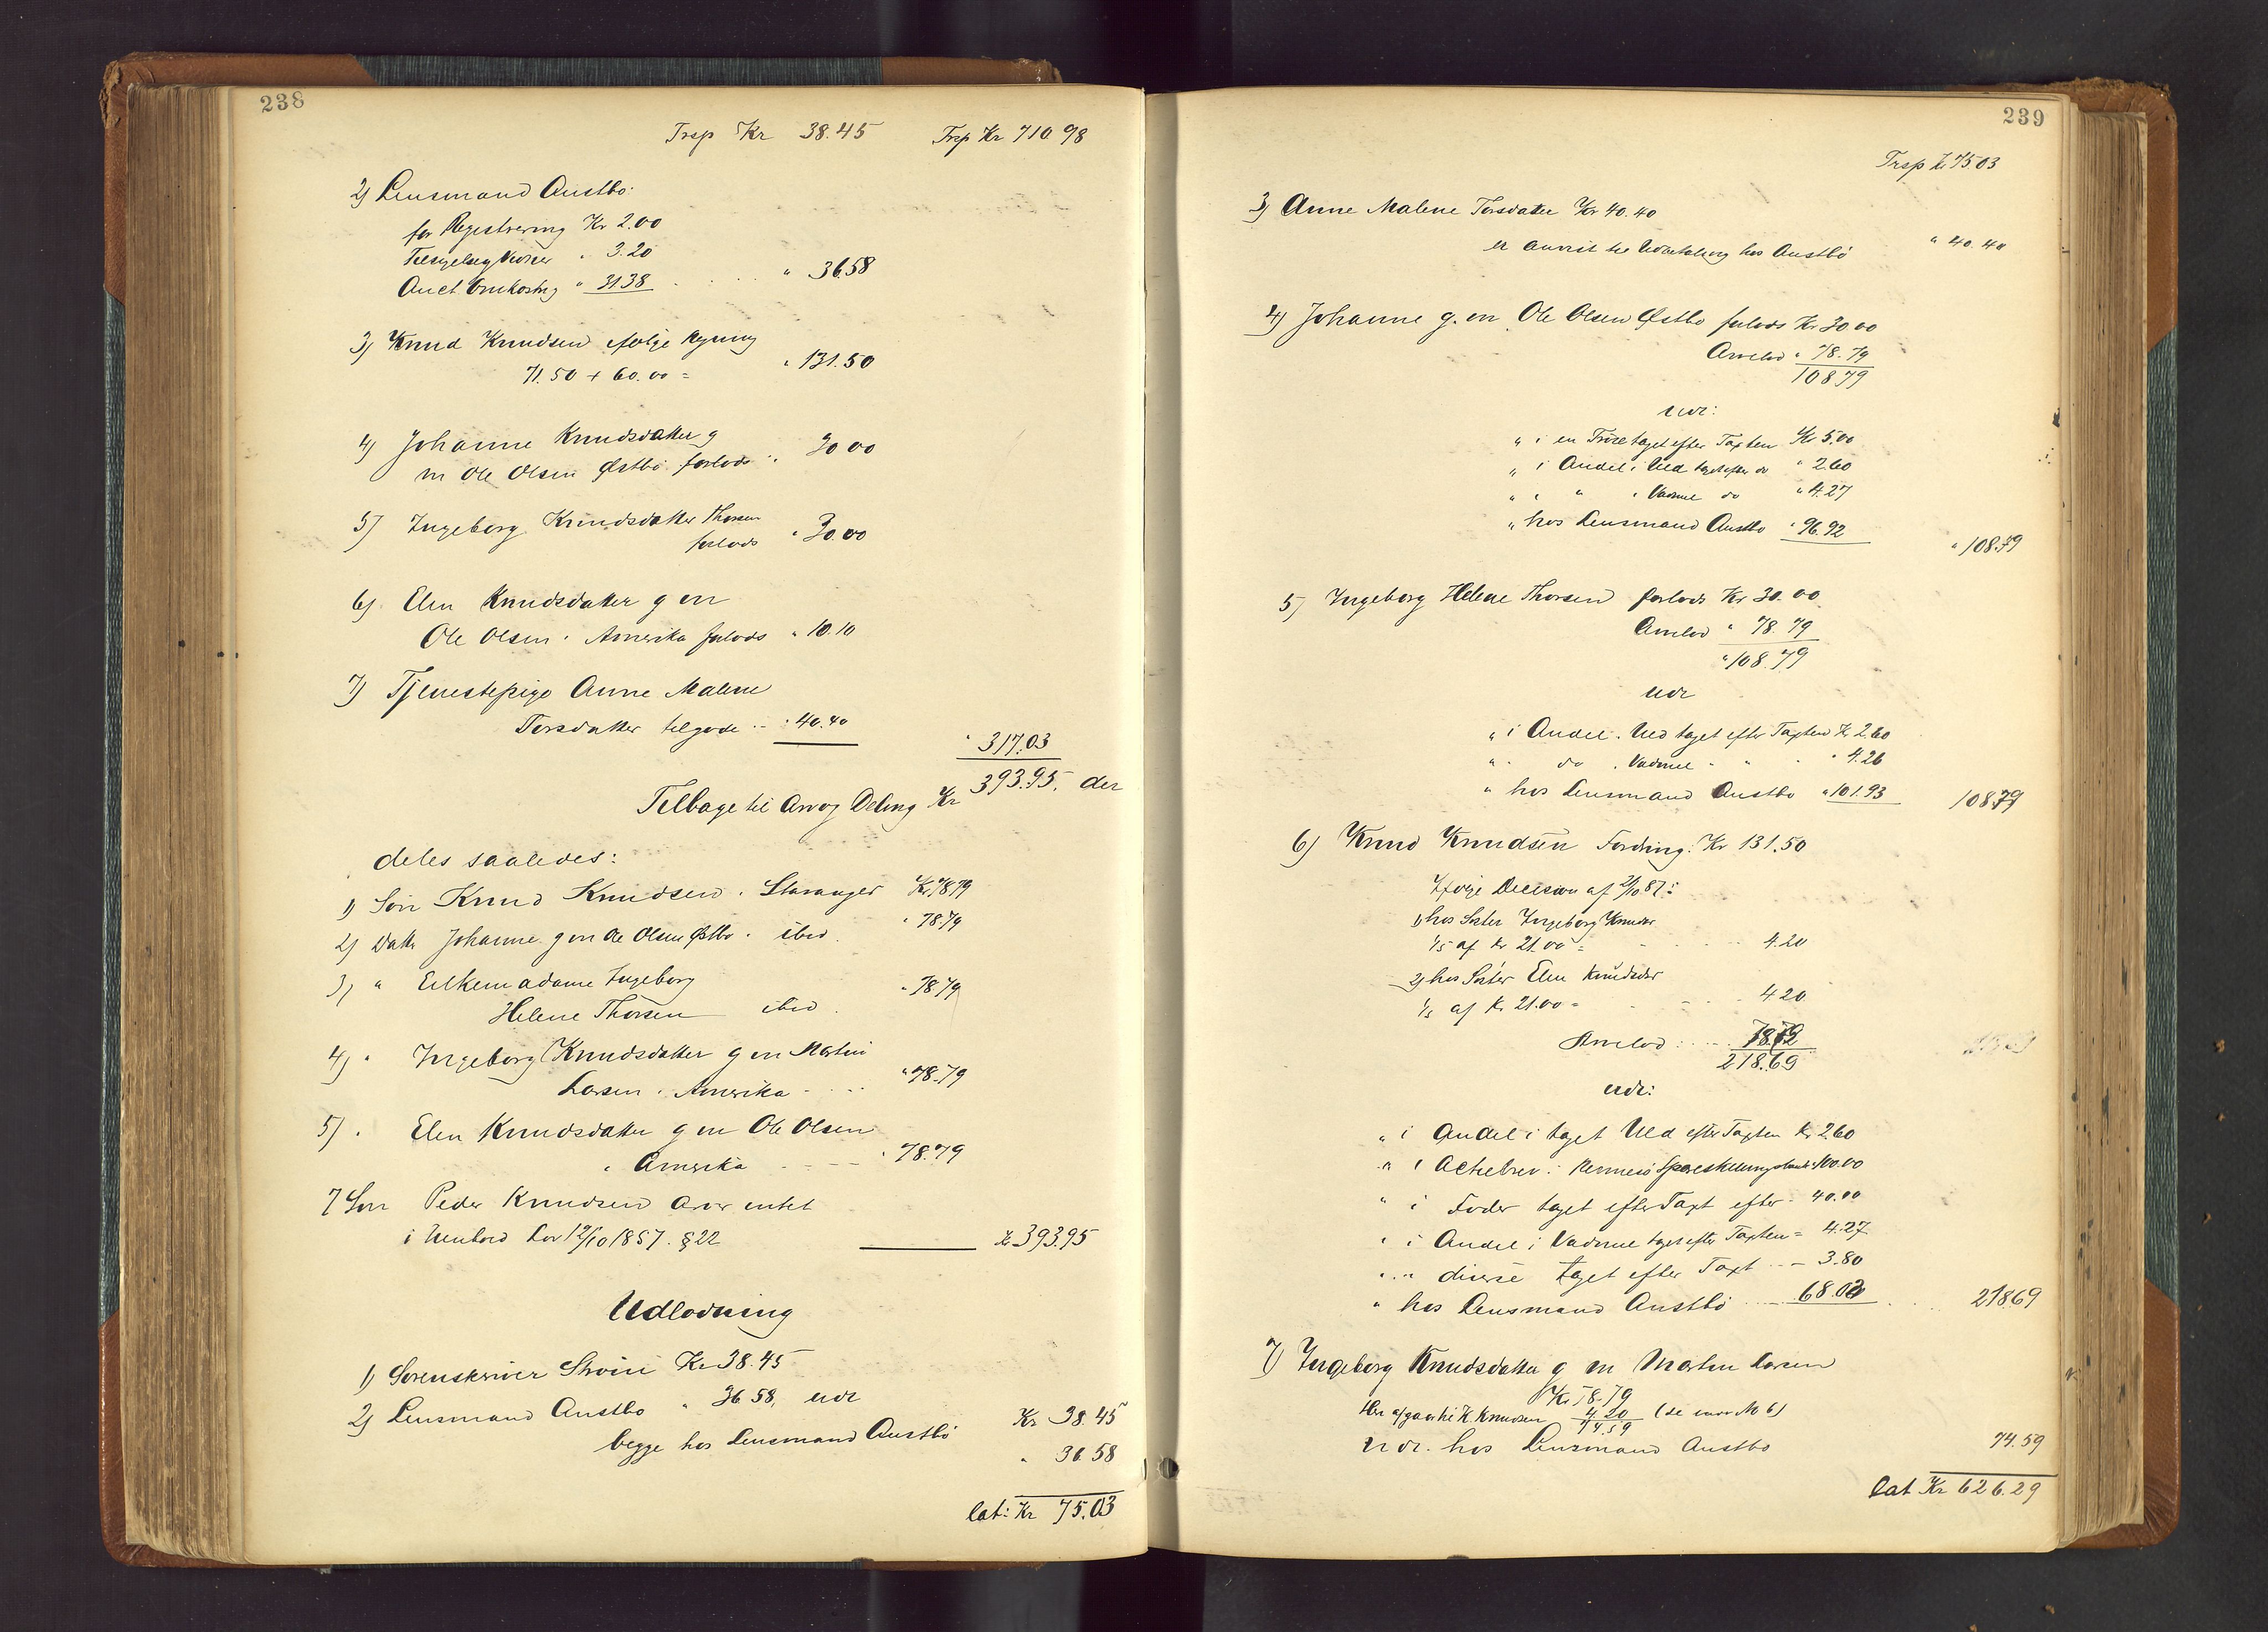 238
Trsp Kr 38.45 Trsp Kr 710 98
2) Lensmand Austbö:
for Registrering Kr 2.00
" 3.20
Auct Omkostng " 31.38 " 36.58
3) Knud Knudsen ifølge Regning
71.50 + 60.00 = " 131.50
4) Johanne Knudsdatter g
m Ole Olsen Østbö forlods " 30 00
5) Ingeborg Knudsdatter Thorsen
forlods " 30.00
6) Elen Knudsdatter g m
Ole Olsen i Amerika forlods " 10.10
7) Tjenestepige Anne Malene
Torsdatter tilgode " 40.40
" 317.03
Tilbage til Arv og Deling Kr 393.95. der
deles saaledes:
1) Søn Knud Knudsen i Stavanger Kr 78.79
2) Datt Johanne g m Ole Olsen Østbö i ibid. " 78.79
3) " Enkemadame Ingeborg
Helene Thorsen ibid. " 78.79
4) " Ingeborg Knudsdatter g m Martin
Larsen i Amerika " 78.79
5) " Elen Knudsdatter g m Ole Olsen
i Amerika " 78.79
7 Søn Peder Knudsen arver intet
i Lov 12/10 1857 § 22 Kr 393.95
Udlodning
1) Sorenskriver Kr 38.45
2) Lensmand Austbö " 36 58, udl
begge hos Lensmand Austbö Kr 38.45
" 36.58
lat: Kr 75.03
239
Trsp Kr 75.03
3) Anne Malene Torsdatter Kr 40.40
er anvist til Udbetaling hos Austbö " 40.40
4) Johanne g. m Ole Olsen Østbö forlods Kr 30 00
Arvelod " 78.79
108 79
udl:
" i en Trøie taget efter Taxten Kr 5.00
" i Andel i Uld taget efter do " 2.60
" " " i Vadmel do " 4.27
" hos Lensmand Austbö " 96.92
" 108.79
5) Ingeborg Helene Thorsen forlods Kr 30.00
Arvelod " 78.79
" 108.79
udl
" i Andel i Uld taget efter Taxten Kr 2.60
" " do i Vadmel " " " 4.26
" hos Lensmand Austbö " 101.93 108.79
6) Knud Knudsen Fordring: Kr 131.50
Ifølge Decision af 87:
1) hos Søster Ingeborg Knudsdr
1/5 af Kr 21.00 = 4.20
2) hos Søster Elen Knudsdr
1/5 af Kr 21.00 = 4 20
Arvelod 78.79
218.69
udl:
" i Andel i taget Uld efter Taxten Kr 2.60
" i Actiebrev i Rennesø 100.00
" i Foder taget efter Taxt efter 40.00
" i Andel i Vadmel taget efter Taxten = 4.27
" " diverse taget efter Taxt 3.80
" hos Lensmand Austbö 68.02 218.69
7) Ingeborg Knudsdatter g m Martin Larsen
Kr 78.79
Her afgaar til K. Knudsen 4.20 (se No 6)
74.59
udl. hos Lensmand Austbö 74.59
lat Kr 626.29